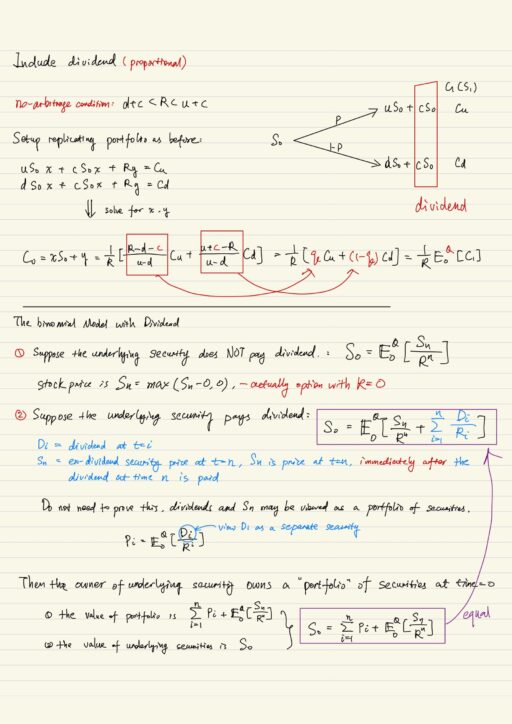 Include dividend (proportional)
C₁(S₁)
no-arbitrage condition: d+c < R < u+c
uS₀ + cS₀ Cu
P
Setup replicating portfolio as before:
S₀
1-P
uS₀x + cS₀x + Ry = Cu
dS₀ + cS₀ Cd
dS₀x + cS₀x + Ry = Cd
dividend
⇓ solve for x.y
C₀ = xS₀ + y = 1/R [ (R-d-c)/(u-d) Cu + (u+c-R)/(u-d) Cd ] = 1/R [ q Cu + (1-q) Cd ] = 1/R E₀^Q [C₁]
The binomial Model with Dividend
① Suppose the underlying security does NOT pay dividend.: S₀ = E₀^Q [ Sn/Rⁿ ]
stock price is Sn = max (Sn-0, 0), – actually option with K=0
② Suppose the underlying security pays dividend: S₀ = E₀^Q [ Sn/Rⁿ + Σ_{i=1}^{n} Di/Ri ]
Di = dividend at t=i
Sn = ex-dividend security price at t=n, Sn is price at t=n, immediately after the
dividend at time n is paid
Do not need to prove this, dividends and Sn may be viewed as a portfolio of securities.
Pi = E₀^Q [ Di/Rⁱ ] view Di as a separate security
Then the owner of underlying security owns a "portfolio" of securities at time=0
① the value of portfolio is Σ_{i=1}^{n} Pi + E₀^Q [ Sn/Rⁿ ]
② the value of underlying securities is S₀
S₀ = Σ_{i=1}^{n} Pi + E₀^Q [ Sn/Rⁿ ]
equal